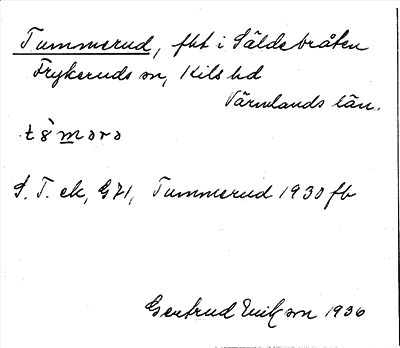 Tummerud, fht i Säldebråten
Frykeruds sn, Kils hd
Värmlands län.
S. T. ek, G71, Tummerud 1930 fb
Gertrud Erikson 1936